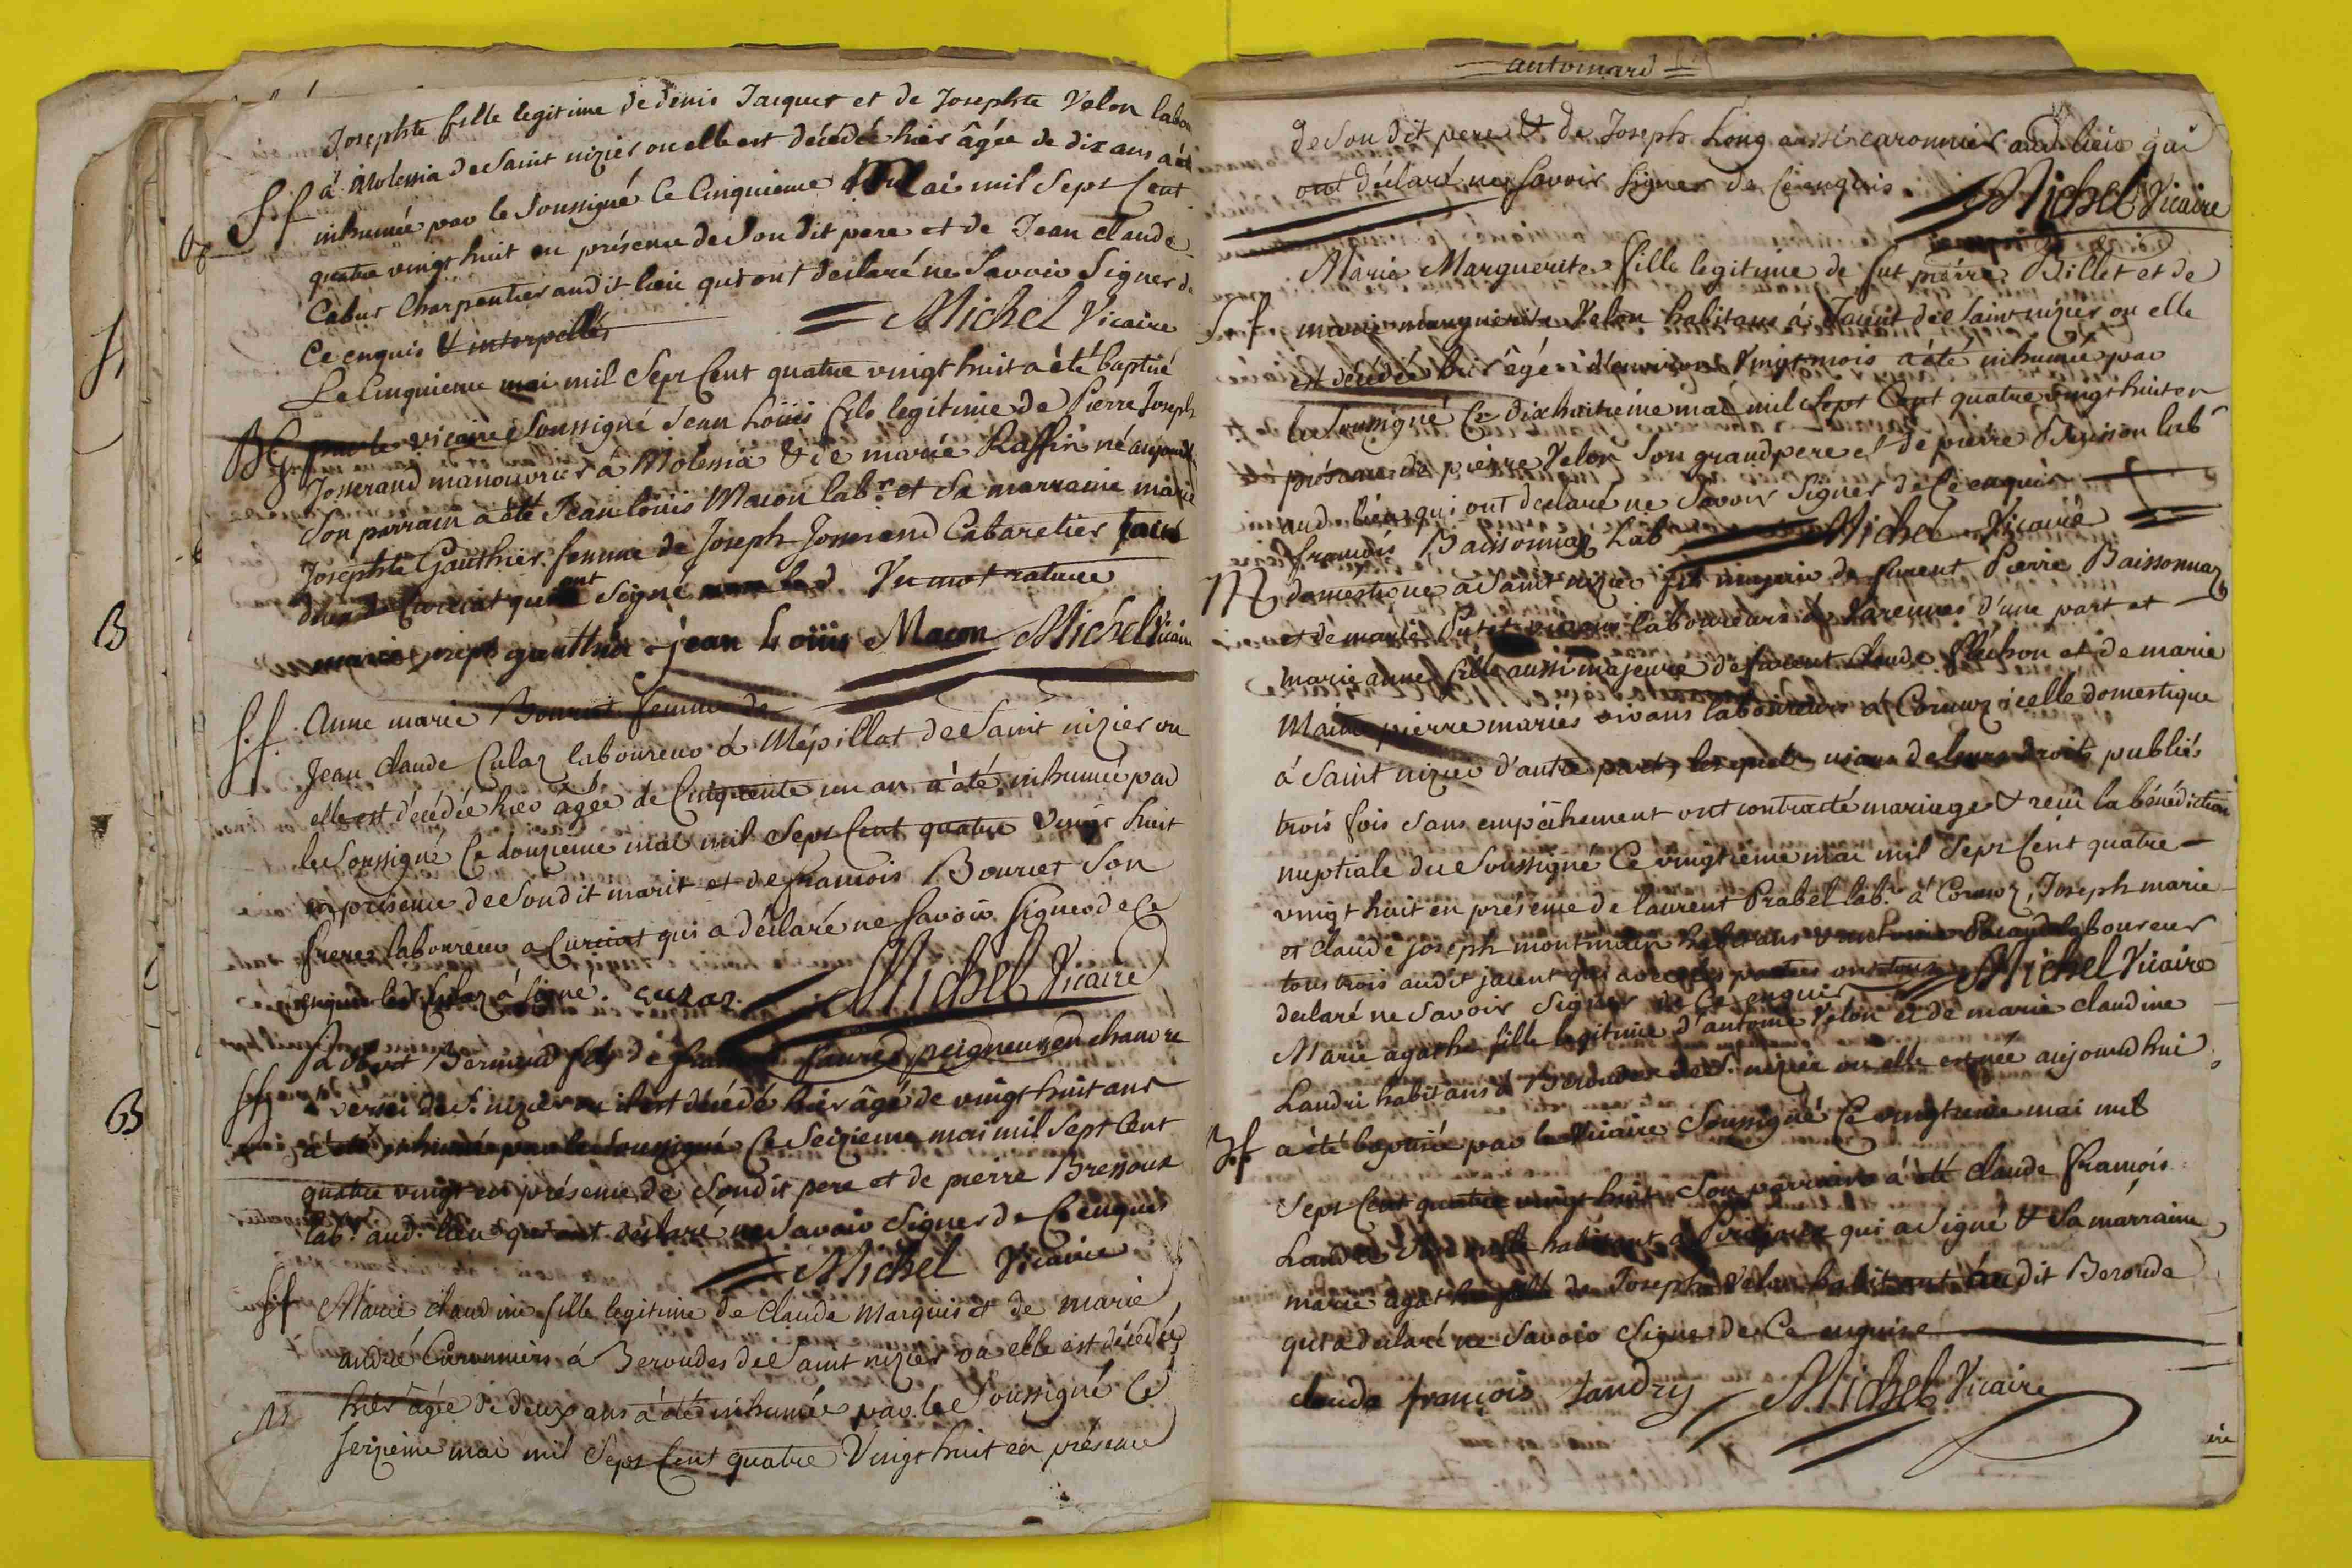 Josephte fille legitime de denis Jacquet et de Josephte Velon labou
S.f à Molessia de Saint nizier ou elle est décédée hier âgée de dix ans a été
inhumée par le Soussigné Ce Cinquieme Mai mil Sept Cent
quatre vingt huit en présence de Son dit pere et de Jean claude
Cabut Charpentier audit lieu qui ont declaré ne Savoir Signer de
Ce enquis & interpellés
Michel Vicaire
Le Cinquieme mai mil Sept Cent quatre vingt huit a été baptisé
BG par le vicaire Soussigné Jean Loüis fils legitime de Pierre Joseph
Josserand manouvrier à Molessia & de marie Raffin né aujourd
Son parrain a été Jean loüis Macon labr. et Sa marraine marie
Josephte Gauthier femme de Joseph Josserand Cabaretier
de Curciat qui ont Signé Un mot raturé
marie joseph gauthier jean Loüis Macon Michel Vicaire
S.f. Anne marie Bourcet femme de
Jean Claude Culaz laboureur à Mépillat de Saint nizier ou
elle est décédée hier âgée de Cinquante un an a été inhumée par
le Soussigné Ce douzieme mai mil Sept Cent quatre Vingt huit
en présence de Son dit marit et de françois Bourcet Son
frere laboureur a Curciat qui a déclaré ne Savoir Signer de Ce
enquis led. Culaz à Signé. culaz.
Michel Vicaire
Bernard fils de peigneur en chanvre
à de St. nizier ou il est décédé hier âgé de vingt huit ans
a été inhumé par le Soussigné Ce Seizieme mai mil Sept Cent
quatre vingt en présence de Son dit pere et de pierre Bressoux
labr. aud. lieu qui ont déclaré ne Savoir Signer de Ce enquis
Michel Vicaire
S.f Marie claudine fille legitime de Claude Marquis et de marie
andré Caronniers à Beroudes de Saint nizier ou elle est décédée
hier âgée de deux ans a été inhumée par le Soussigné Ce
Seizieme mai mil Sept Cent quatre Vingt huit en présence
antomard
de Son dit pere & de Joseph Long aussi caronnier aud. lieu qui
ont déclaré ne Savoir Signer de Ce enquis
Michel Vicaire
Marie Marguerite fille legitime de fut pierre Billet et de
S.f marie marguerite Velon habitans à Jaient de Saint nizier ou elle
est décédée hier âgée d'environ Vingt mois a été inhumée par
le Soussigné Ce dixhuitiéme mai mil Sept Cent quatre vingt huit en
présence de pierre Velon Son grand pere et de pierre labr
aud. lieu qui ont declaré ne Savoir Signer de Ce enquis
Michel Vicaire
françois Baissonnaz Lab
M domestique a Saint nizier fils majeur de furent Pierre Baissonnaz
et de marie Putet laboureurs à Varennes d'une part et
marie anne fille aussi majeure de furent Claude fléchon et de marie
pierre mariés vivans laboureurs à Cormoz icelle domestique
à Saint nizier d'autre part, lesquels usans de leurs droits publiés
trois fois Sans empêchement ont contracté mariage & reçu la bénédiction
nuptiale du Soussigné Ce vingtieme mai mil Sept Cent quatre
vingt huit en présence de laurent Prabel labr. à Cormoz, Joseph marie
et claude Joseph montmain habitans & laboureur
tous trois audit jaient qui avec les parties ont tous
declaré ne Savoir Signer de Ce enquis
Michel Vicaire
Marie agathe fille legitime d'antoine Velon et de marie claudine
Landri habitans à Beroudes de St. nizier ou elle est née aujourd hui
B.f a été baptisée par le Vicaire Soussigné Ce vingtieme mai mil
Sept Cent quatre vingt huit Son parrain à été Claude françois
Landri habitant à qui a Signé & Sa marraine
marie agathe fille de Joseph Velon habitant audit Beroude
qui a declaré ne Savoir Signer de Ce enquise
claude françois Landry Michel Vicaire